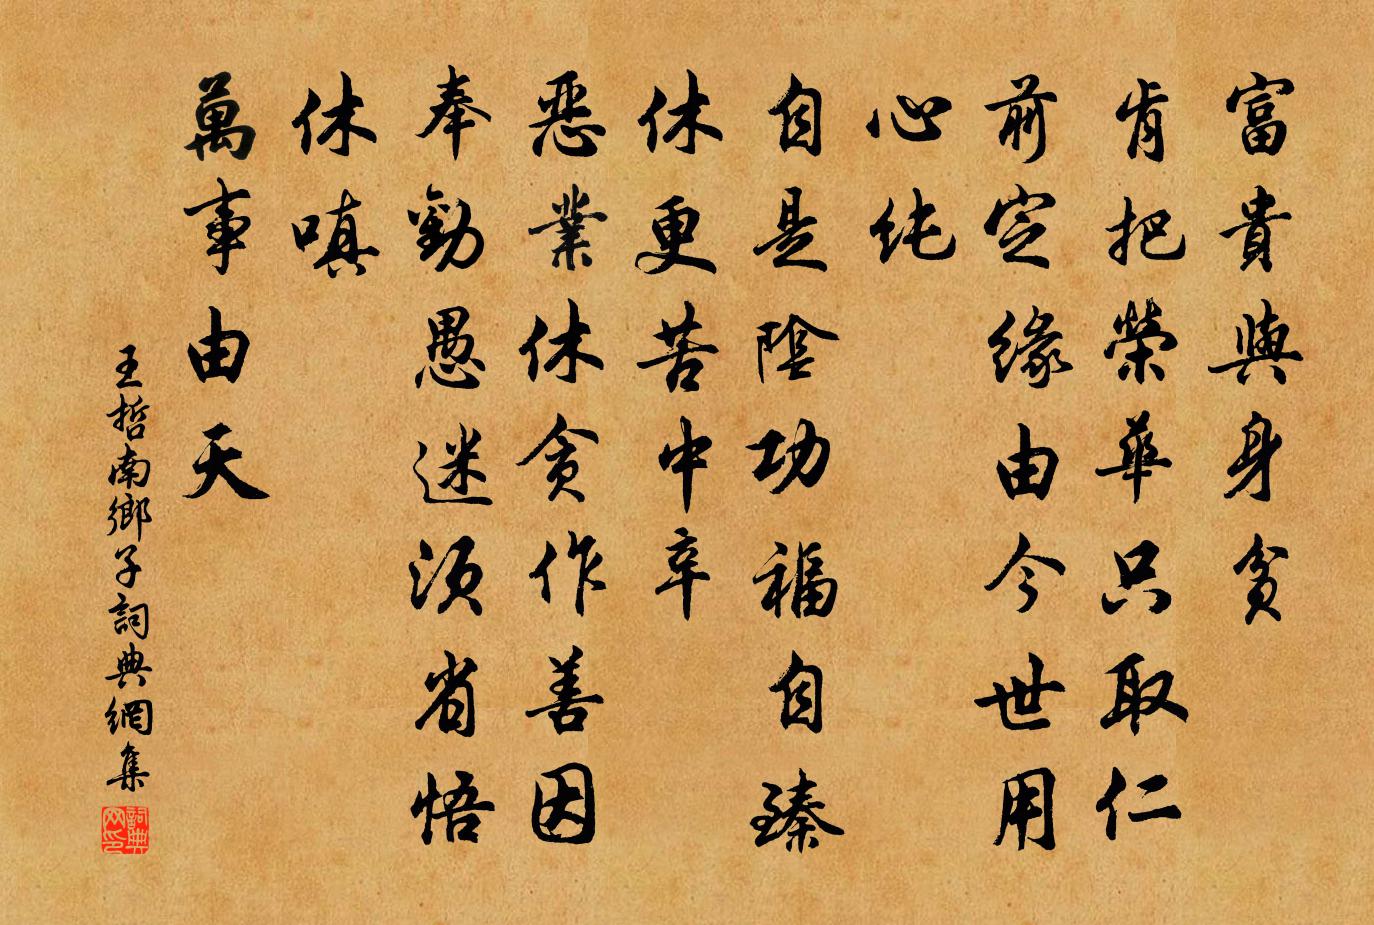 富貴與身貧
肯把榮華只取仁
前定緣由今世用
心纯
自是陰功福自臻
休更苦中辛
惡業休贪作善因
奉勸愚迷须省悟
休嗔
萬事由天
王哲南鄉子詞典網集
詞典网印